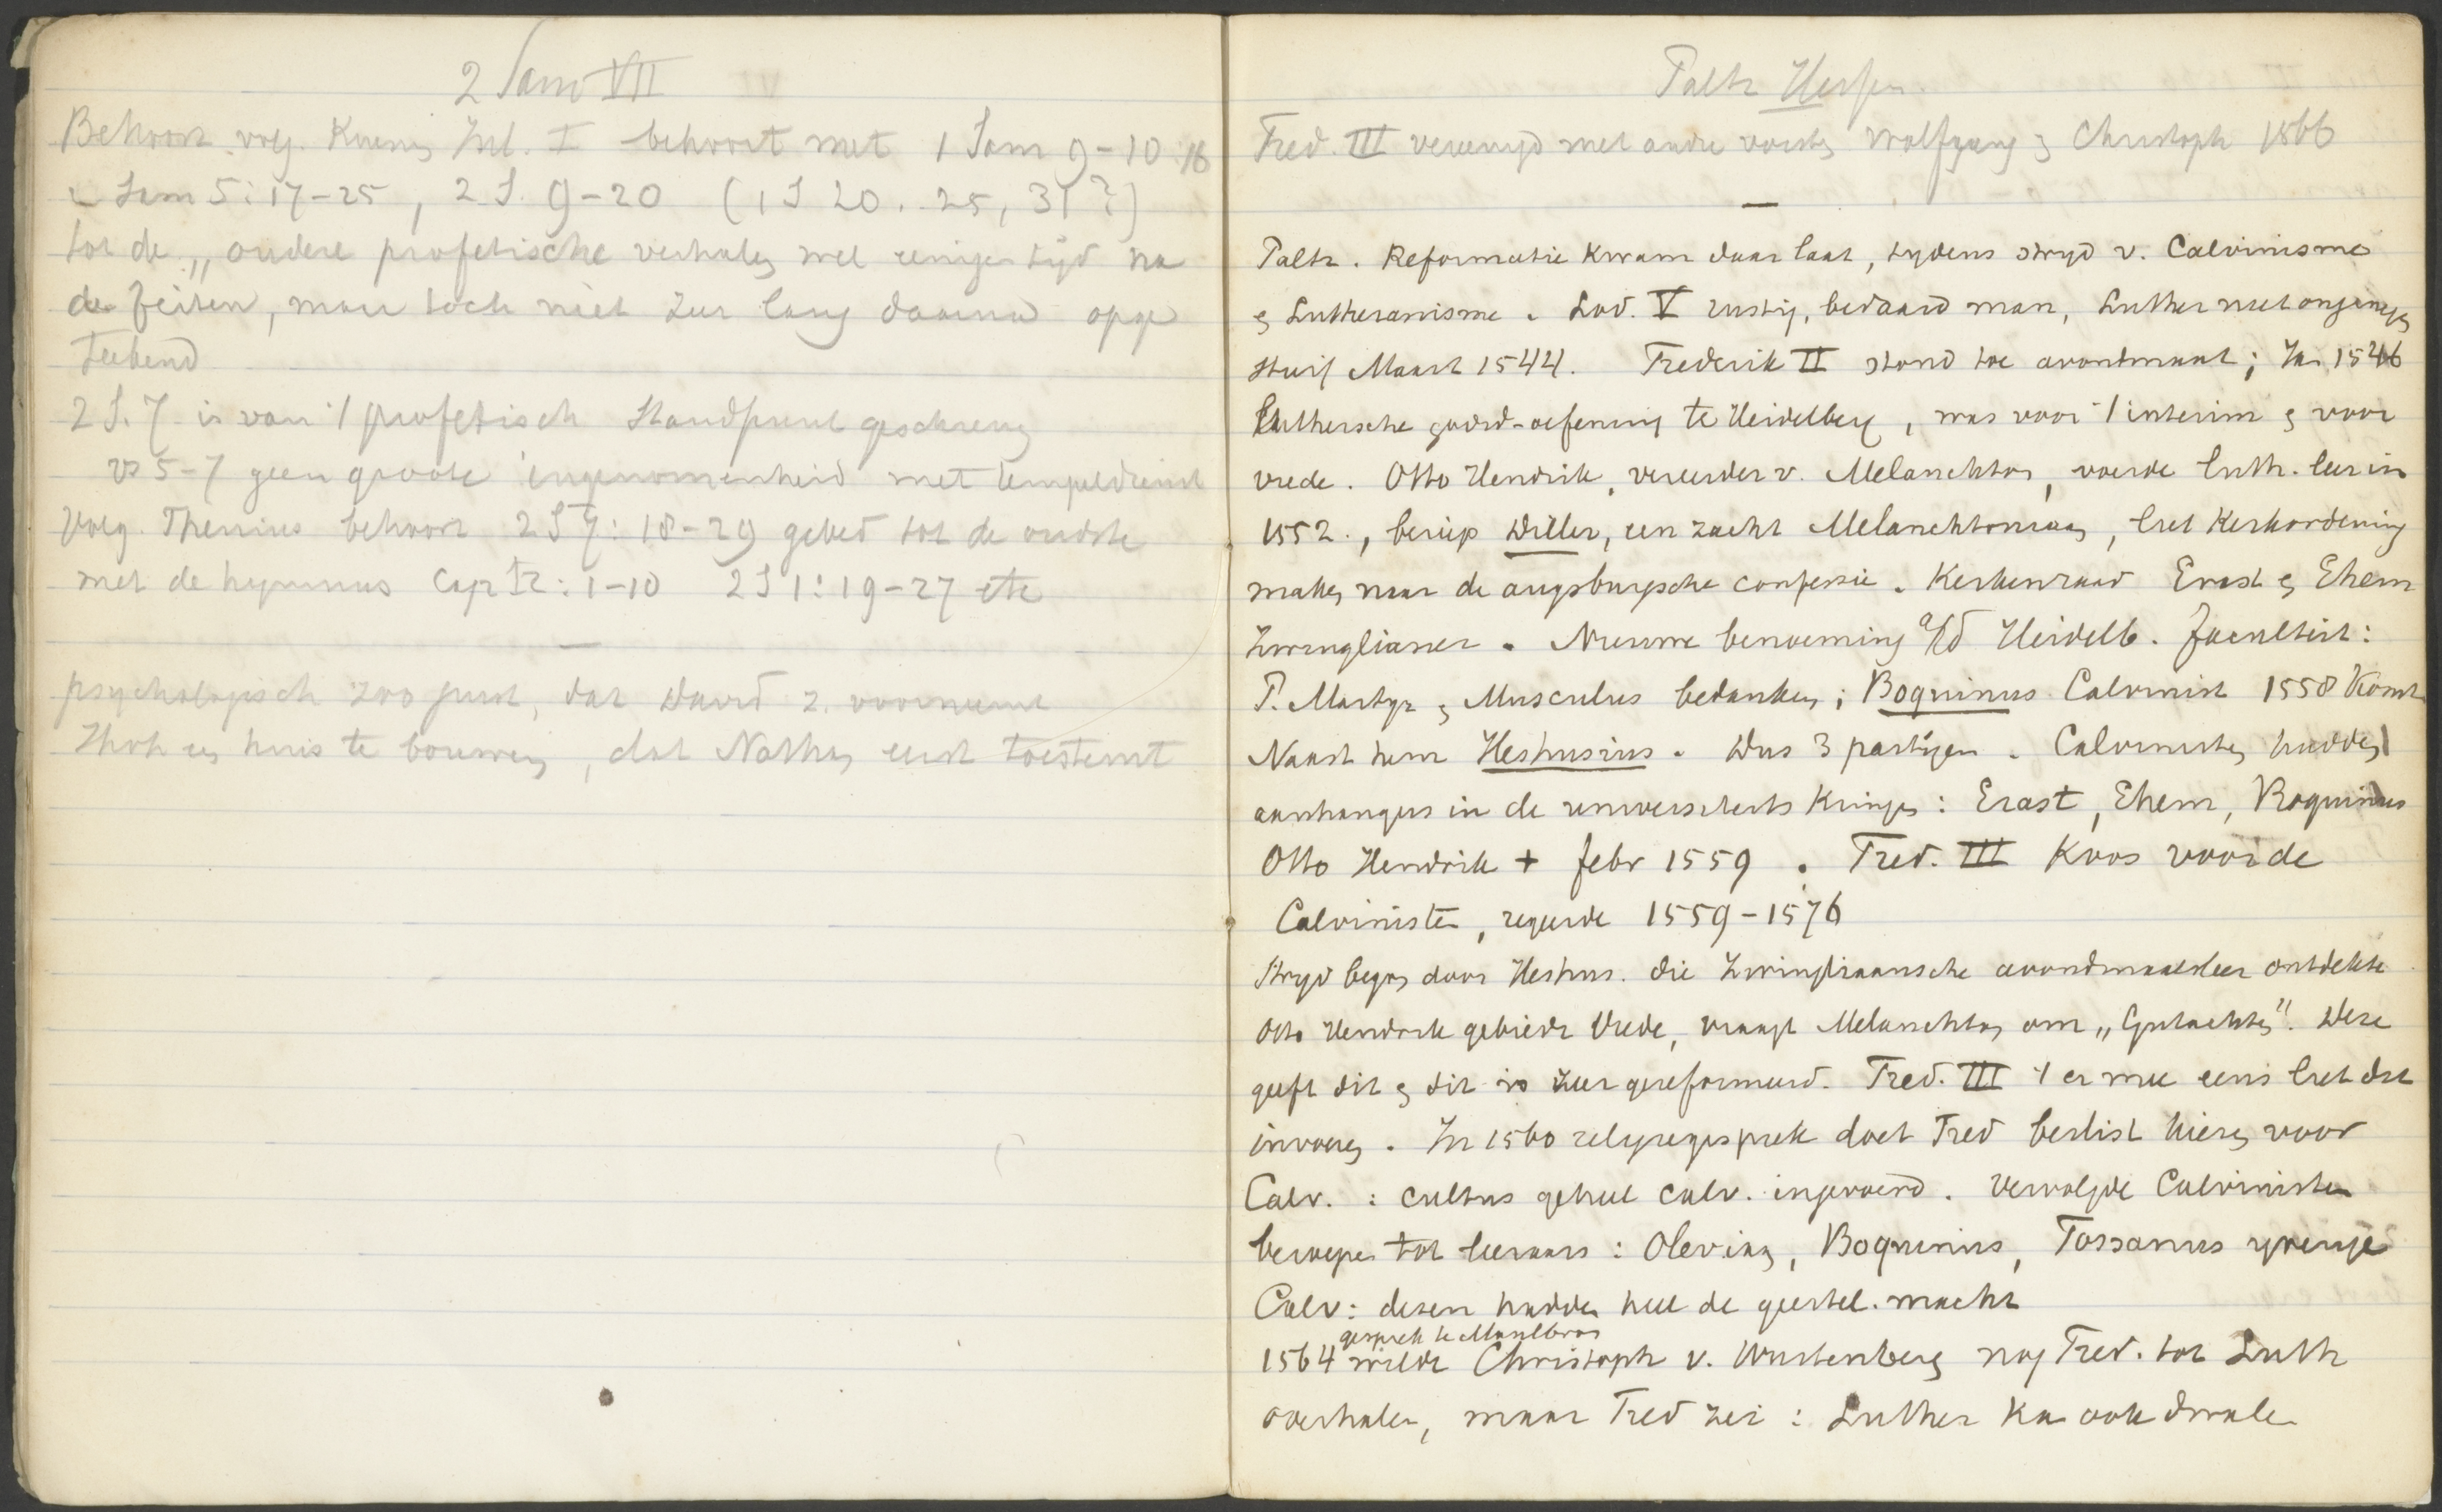 2 Sam VII
Behoort volg. Kuenen Inl. I behoort met 1 Sam 9-10:16
2 Sam 5:17-25, 2 S. 9-20 (1 S 20. 25, 31?)
tot de „oudere profetische verhalen wel eenigen tijd na
de feiten, maar toch niet zeer lang daarna opge
teekend
2 S. 7 is van 't profetisch standpunt geschreven
vs 5-7 geen groote ingenomenheid met tempeldienst
Volg. Thenius behoort 2 S 7: 18-29 gebed tot de oudste
met de hymnus Cap : 1-10 2 S 1: 19-27 etc
psychologisch zoo juist, dat David z. voorneemt
Jhvh een huis te bouwen, dat Nathan eerst toestemt
Paltz Hessen
Fred. III vereenigd met andre vorsten Wolfgang en Christoph 1566
Paltz. Reformatie kwam daar laat, tydens stryd v. Calvinisme
en Lutheranisme. Lod. V rustig, bedaard man, Luther niet ongenegen
stierf Maart 1544. Frederik II stond toe avondmaal; In 1546
Luthersche godsd-oefening te Heidelberg, was voor 't interim en voor
vrede. Otto Hendrik, vereerder v. Melanchton, voerde luth. leer in
1552., beriep Diller, een zacht Melanchtoniaan, liet Kerkordening
maken naar de augsburgsche confessie. Kerkenraad Erast en Ehem
Zwinglianer. Nieuwe benoeming a/d Heidelb. faculteit:
P. Martyr en Musculus bedanken; Boquinus Calvinist 1558 komt
Naast hem Heshusius. Dus 3 partijen. Calvinisten hadden
aanhangers in de universiteits kringen: Erast, Ehem, Boquinus
Otto Hendrik + febr 1559. Fred. III koos voor de
Calvinisten, regeerde 1559-1576
Stryd begon door Heshus. die Zwingliaansche avondmaalsleer ontdekte
Otto Hendrik gebiedt Vrede, vraagt Melanchton om „Gutachten". Deze
geeft dit en dit is zeer gereformeerd. Fred. III 't er mee eens liet dit
invoeren. In 1560 religiegesprek doet Fred beslist kiezen voor
Calv. : cultus geheel calv. ingevoerd. Vervolgde Calvinisten
beroepen tot leeraars: Olevian, Boquinus, Tossanus yverige
Calv: dezen hadden heel de geestel. macht
gesprek te Maulbron
1564 wilde Christoph v. Wurtenberg nog Fred. tot Luth
overhalen, maar Fred zei: Luther kan ook dwalen